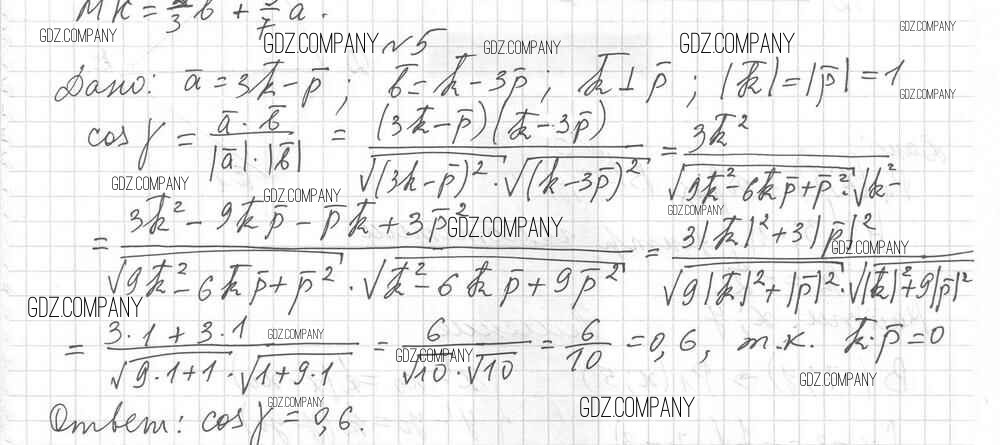 MK = 2/3 b̄ + 3/7 ā.
GDZ.COMPANY GDZ.COMPANY №5 GDZ.COMPANY GDZ.COMPANY GDZ.COMPANY
Дано: ā = 3k̄ - p̄ ; b̄ = k̄ - 3p̄ ; k̄ ⊥ p̄ ; |k̄| = |p̄| = 1
GDZ.COMPANY
cos γ = (ā · b̄)/(|ā| · |b̄|) = ((3k̄ - p̄)(k̄ - 3p̄))/(√(3k - p̄)² · √(k - 3p̄)²) = 3k̄²/(√9k̄² - 6k̄p̄ + p̄² · √k̄² -
GDZ.COMPANY GDZ.COMPANY GDZ.COMPANY
= (3k̄² - 9k̄p̄ - p̄k̄ + 3p̄²)/(√9k̄² - 6k̄p̄ + p̄² · √k̄² - 6k̄p̄ + 9p̄²) = (3|k̄|² + 3|p̄|²)/(√9|k̄|² + |p̄|² · √|k̄|² + 9|p̄|²)
GDZ.COMPANY GDZ.COMPANY
GDZ.COMPANY
= (3·1 + 3·1)/(√9·1+1 · √1+9·1) = 6/(√10 · √10) = 6/10 = 0,6, т.к. k̄·p̄ = 0
GDZ.COMPANY GDZ.COMPANY GDZ.COMPANY
Ответ: cos γ = 0,6.
GDZ.COMPANY GDZ.COMPANY